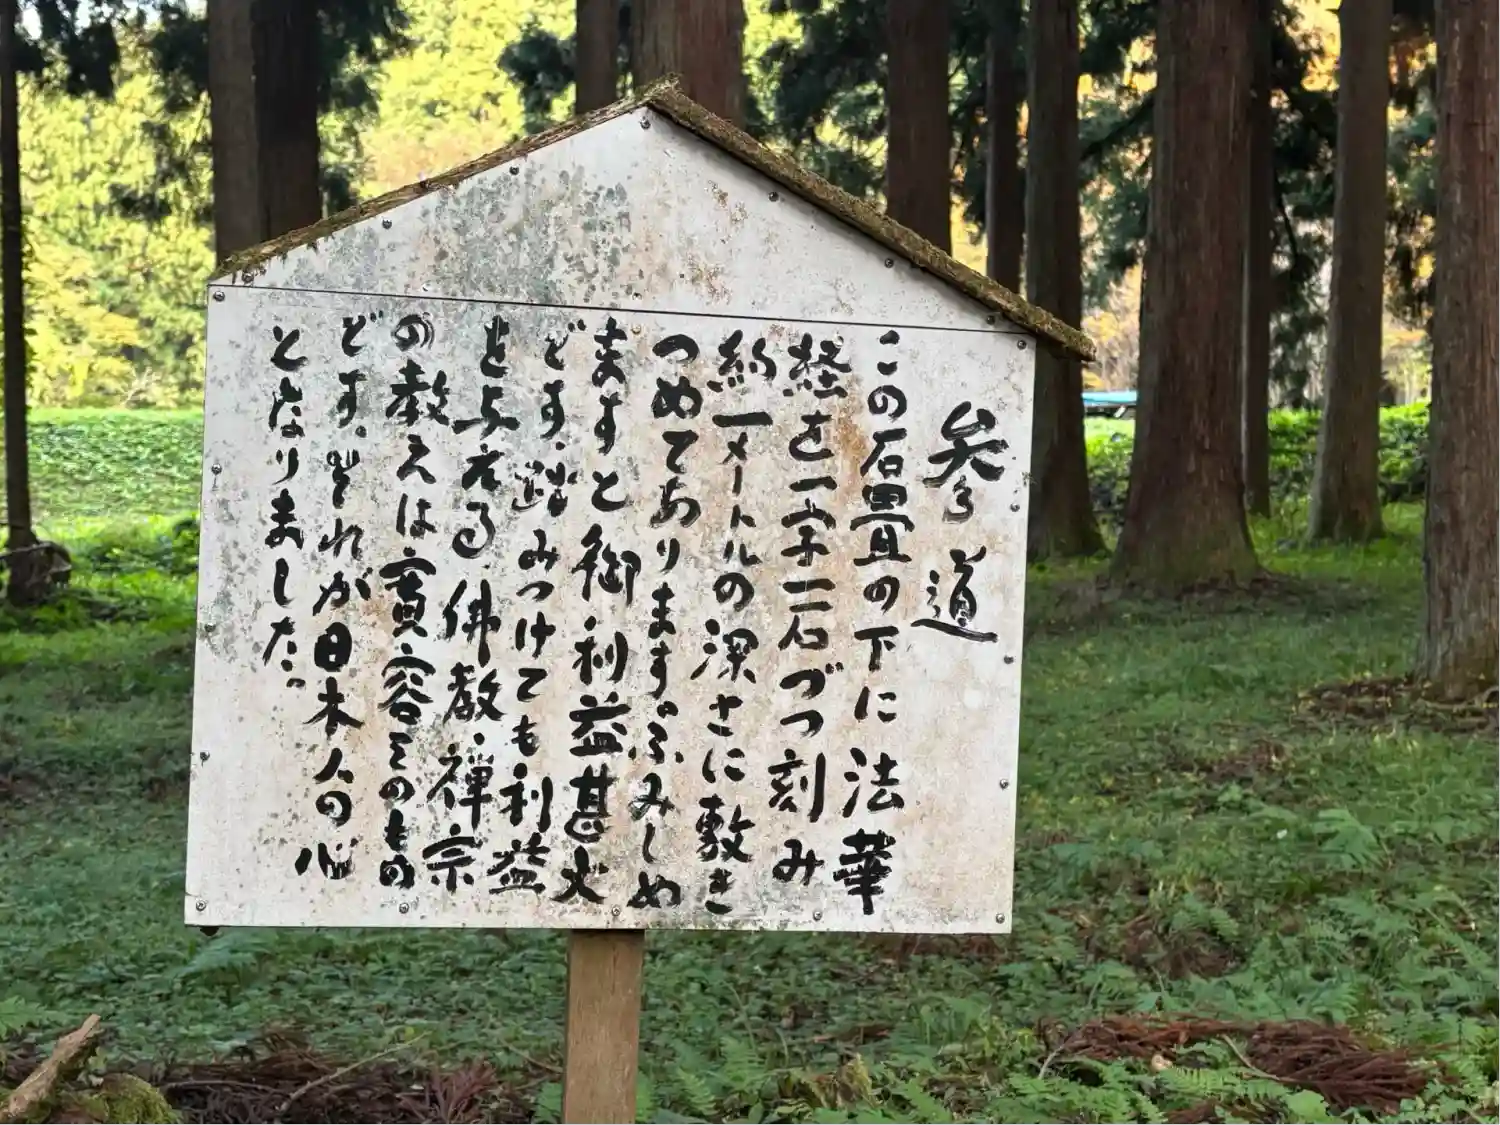 参道
この石畳の下に法華
経を一字一石づつ刻み
約一メートルの深さに敷き
つめてあります。ふみしめ
ますと御利益甚大
です。踏みつけても利益
を与える佛教、禅宗
の教えは寛容そのもの
です。それが日本人の心
となりました。